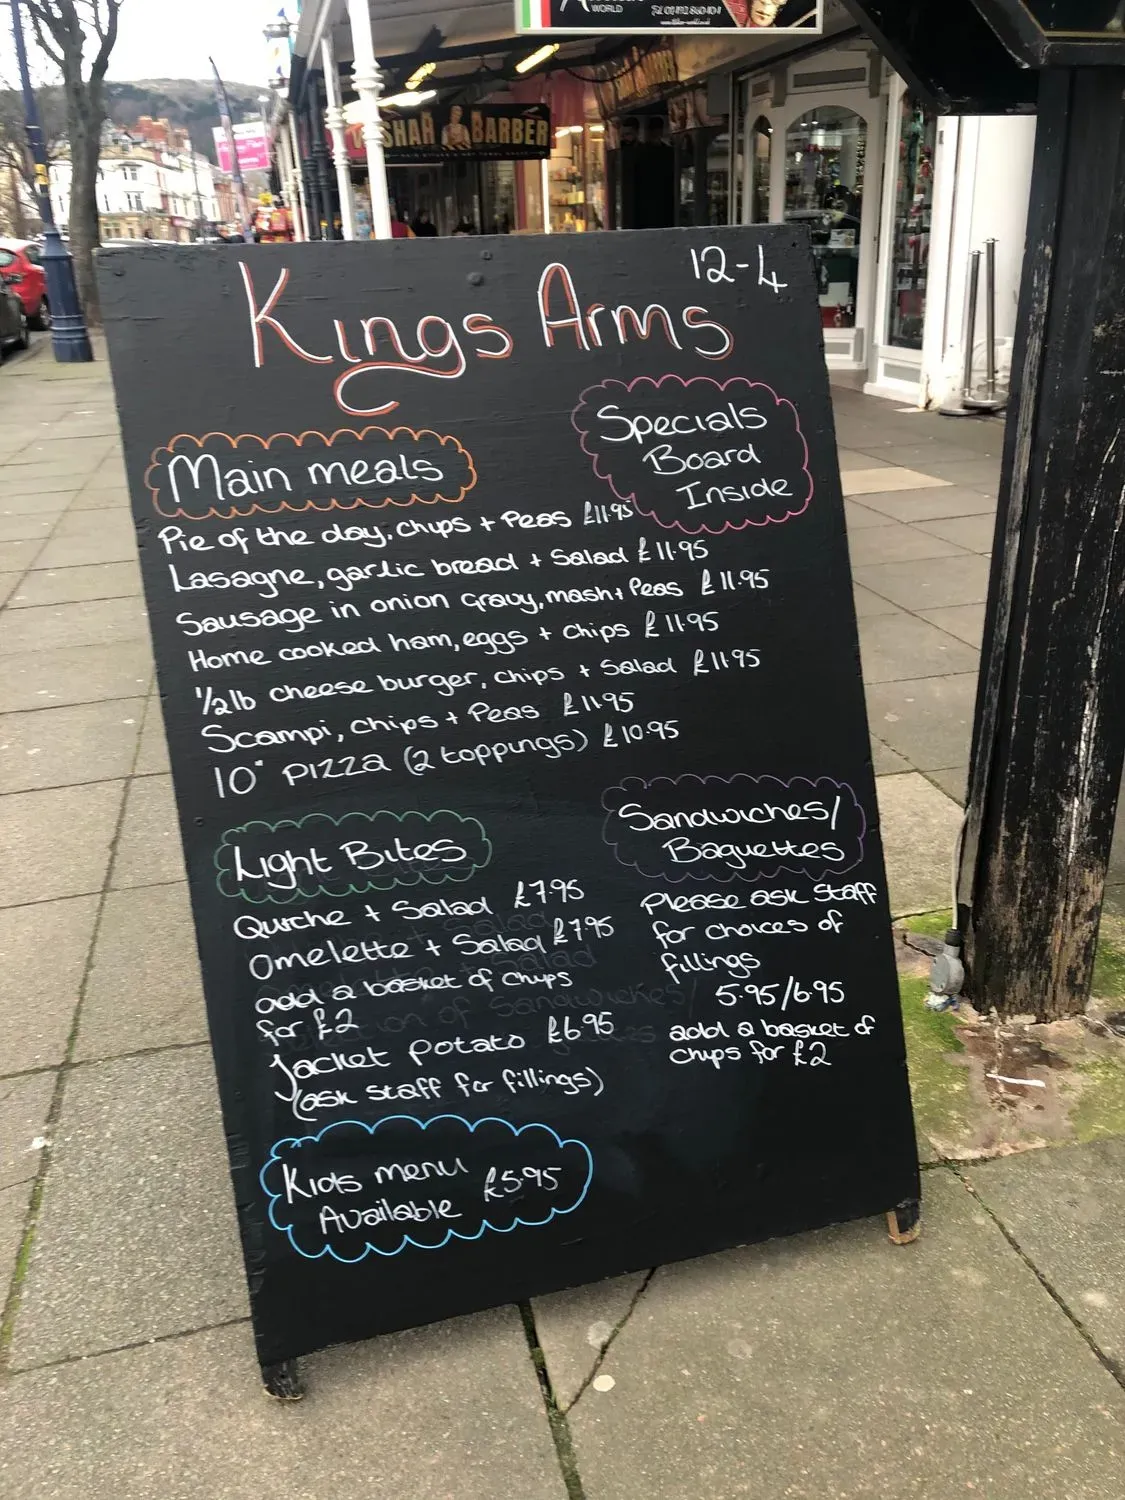 WORLD
YASHAR BARBER
BARBER
12-4
Kings Arms
Specials
Board
Inside
Main meals
Pie of the day, chips + Peas £11.95
Lasagne, garlic bread + Salad £11.95
Sausage in onion gravy, mash + Peas £11.95
Home cooked ham, eggs + chips £11.95
1/2lb cheese burger, chips + Salad £11.95
Scampi, chips + Peas £11.95
10" PIZZA (2 toppings) £10.95
Light Bites
Quiche + Salad £7.95
Omelette + Salad £7.95
add a basket of chips
for £2
Jacket Potato £6.95
(ask staff for fillings)
Sandwiches/
Baguettes
Please ask staff
for choices of
fillings
5.95/6.95
add a basket of
chips for £2
Kids menu
Available £5.95